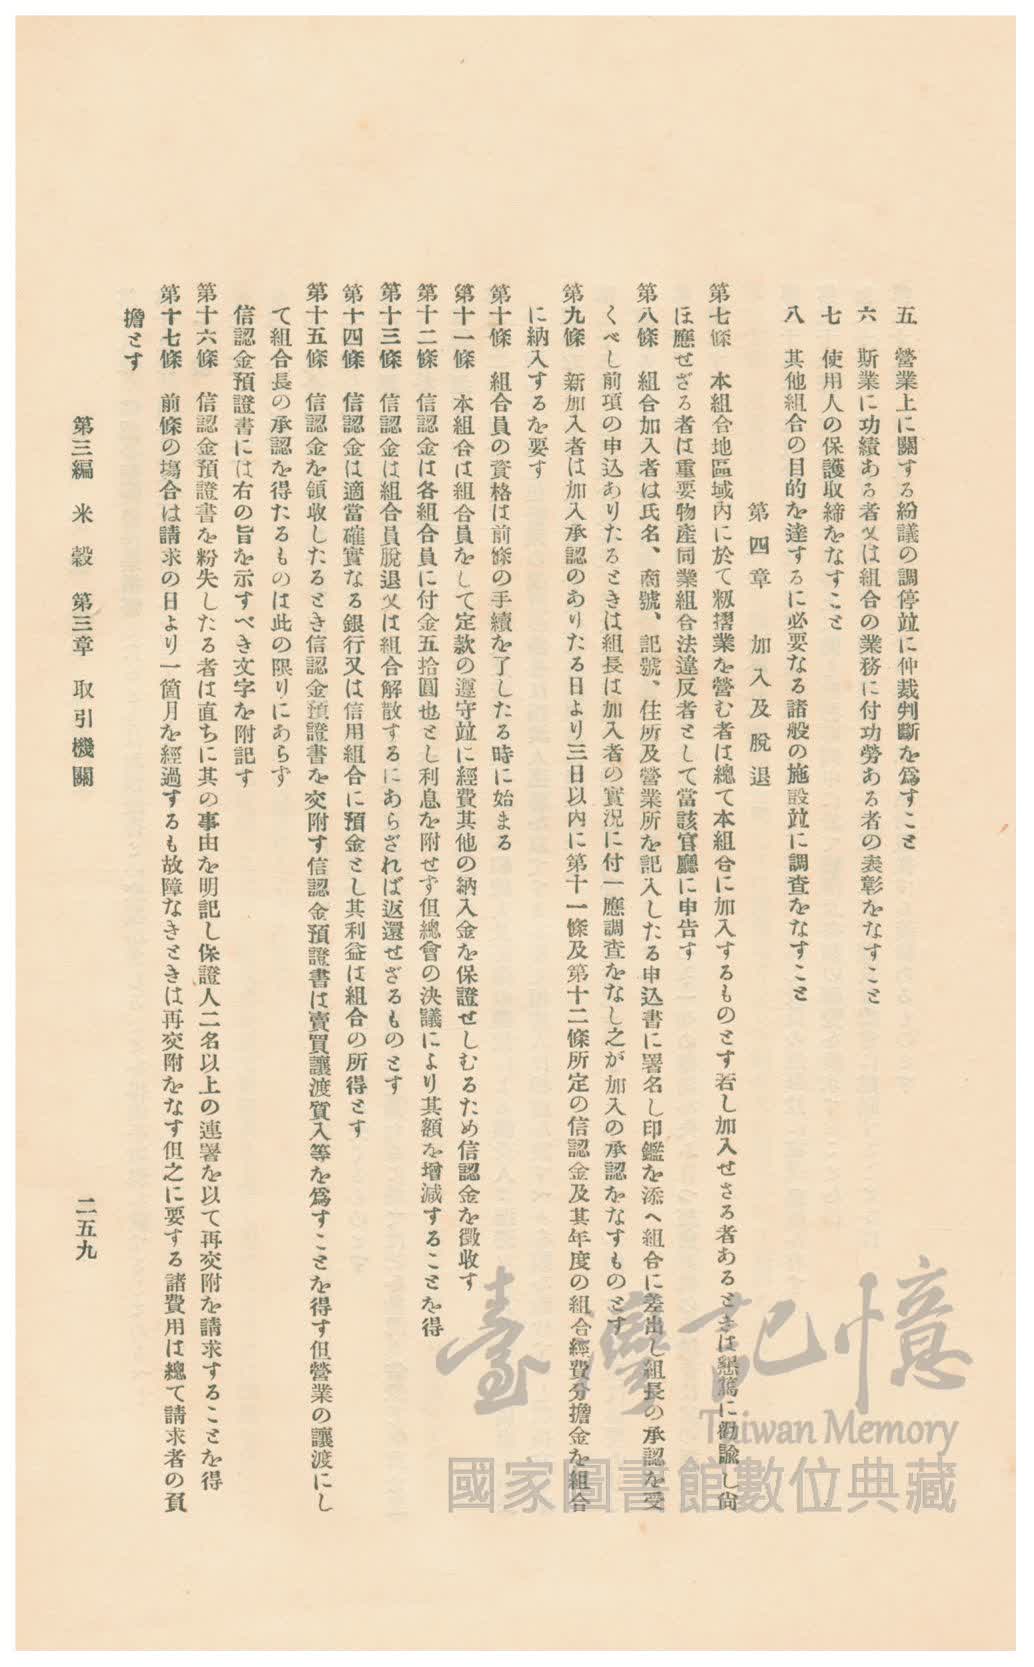 五　營業上に關する紛議の調停竝に仲裁判斷を爲すこと
六　斯業に功績ある者又は組合の業務に付功勞ある者の表彰をなすこと
七　使用人の保護取締をなすこと
八　其他組合の目的を達するに必要なる諸般の施設竝に調査をなすこと
第四章　加入及脫退
第七條　本組合地區域內に於て籾摺業を營む者は總て本組合に加入するものとす若し加入せさる者あるときは懇篤に勸諭し尙
ほ應せざる者は重要物產同業組合法違反者として當該官廳に申告す
第八條　組合加入者は氏名、商號、記號、住所及營業所を記入したる申込書に署名し印鑑を添へ組合に差出し組長の承認を受
くべし前項の申込ありたるときは組長は加入者の實況に付一應調査をなし之が加入の承認をなすものとす
第九條　新加入者は加入承認のありたる日より三日以內に第十一條及第十二條所定の信認金及其年度の組合經費分擔金を組合
に納入するを要す
第十條　組合員の資格は前條の手續を了したる時に始まる
第十一條　本組合は組合員をして定款の遵守竝に經費其他の納入金を保證せしむるため信認金を徵收す
第十二條　信認金は各組合員に付金五拾圓也とし利息を附せず但總會の決議により其額を增減することを得
第十三條　信認金は組合員脫退又は組合解散するにあらざれば返還せざるものとす
第十四條　信認金は適當確實なる銀行又は信用組合に預金とし其利益は組合の所得とす
第十五條　信認金を領收したるとき信認金預證書を交附す信認金預證書は賣買讓渡質入等を爲すことを得す但營業の讓渡にし
て組合長の承認を得たるものは此の限りにあらず
信認金預證書には右の旨を示すべき文字を附記す
第十六條　信認金預證書を粉失したる者は直ちに其の事由を明記し保證人二名以上の連署を以て再交附を請求することを得
第十七條　前條の塲合は請求の日より一箇月を經過するも故障なきときは再交附をなす但之に要する諸費用は總て請求者の負
擔とす
第三編　米穀　第三章　取引機關
二五九
臺灣記憶
Taiwan Memory
國家圖書館數位典藏